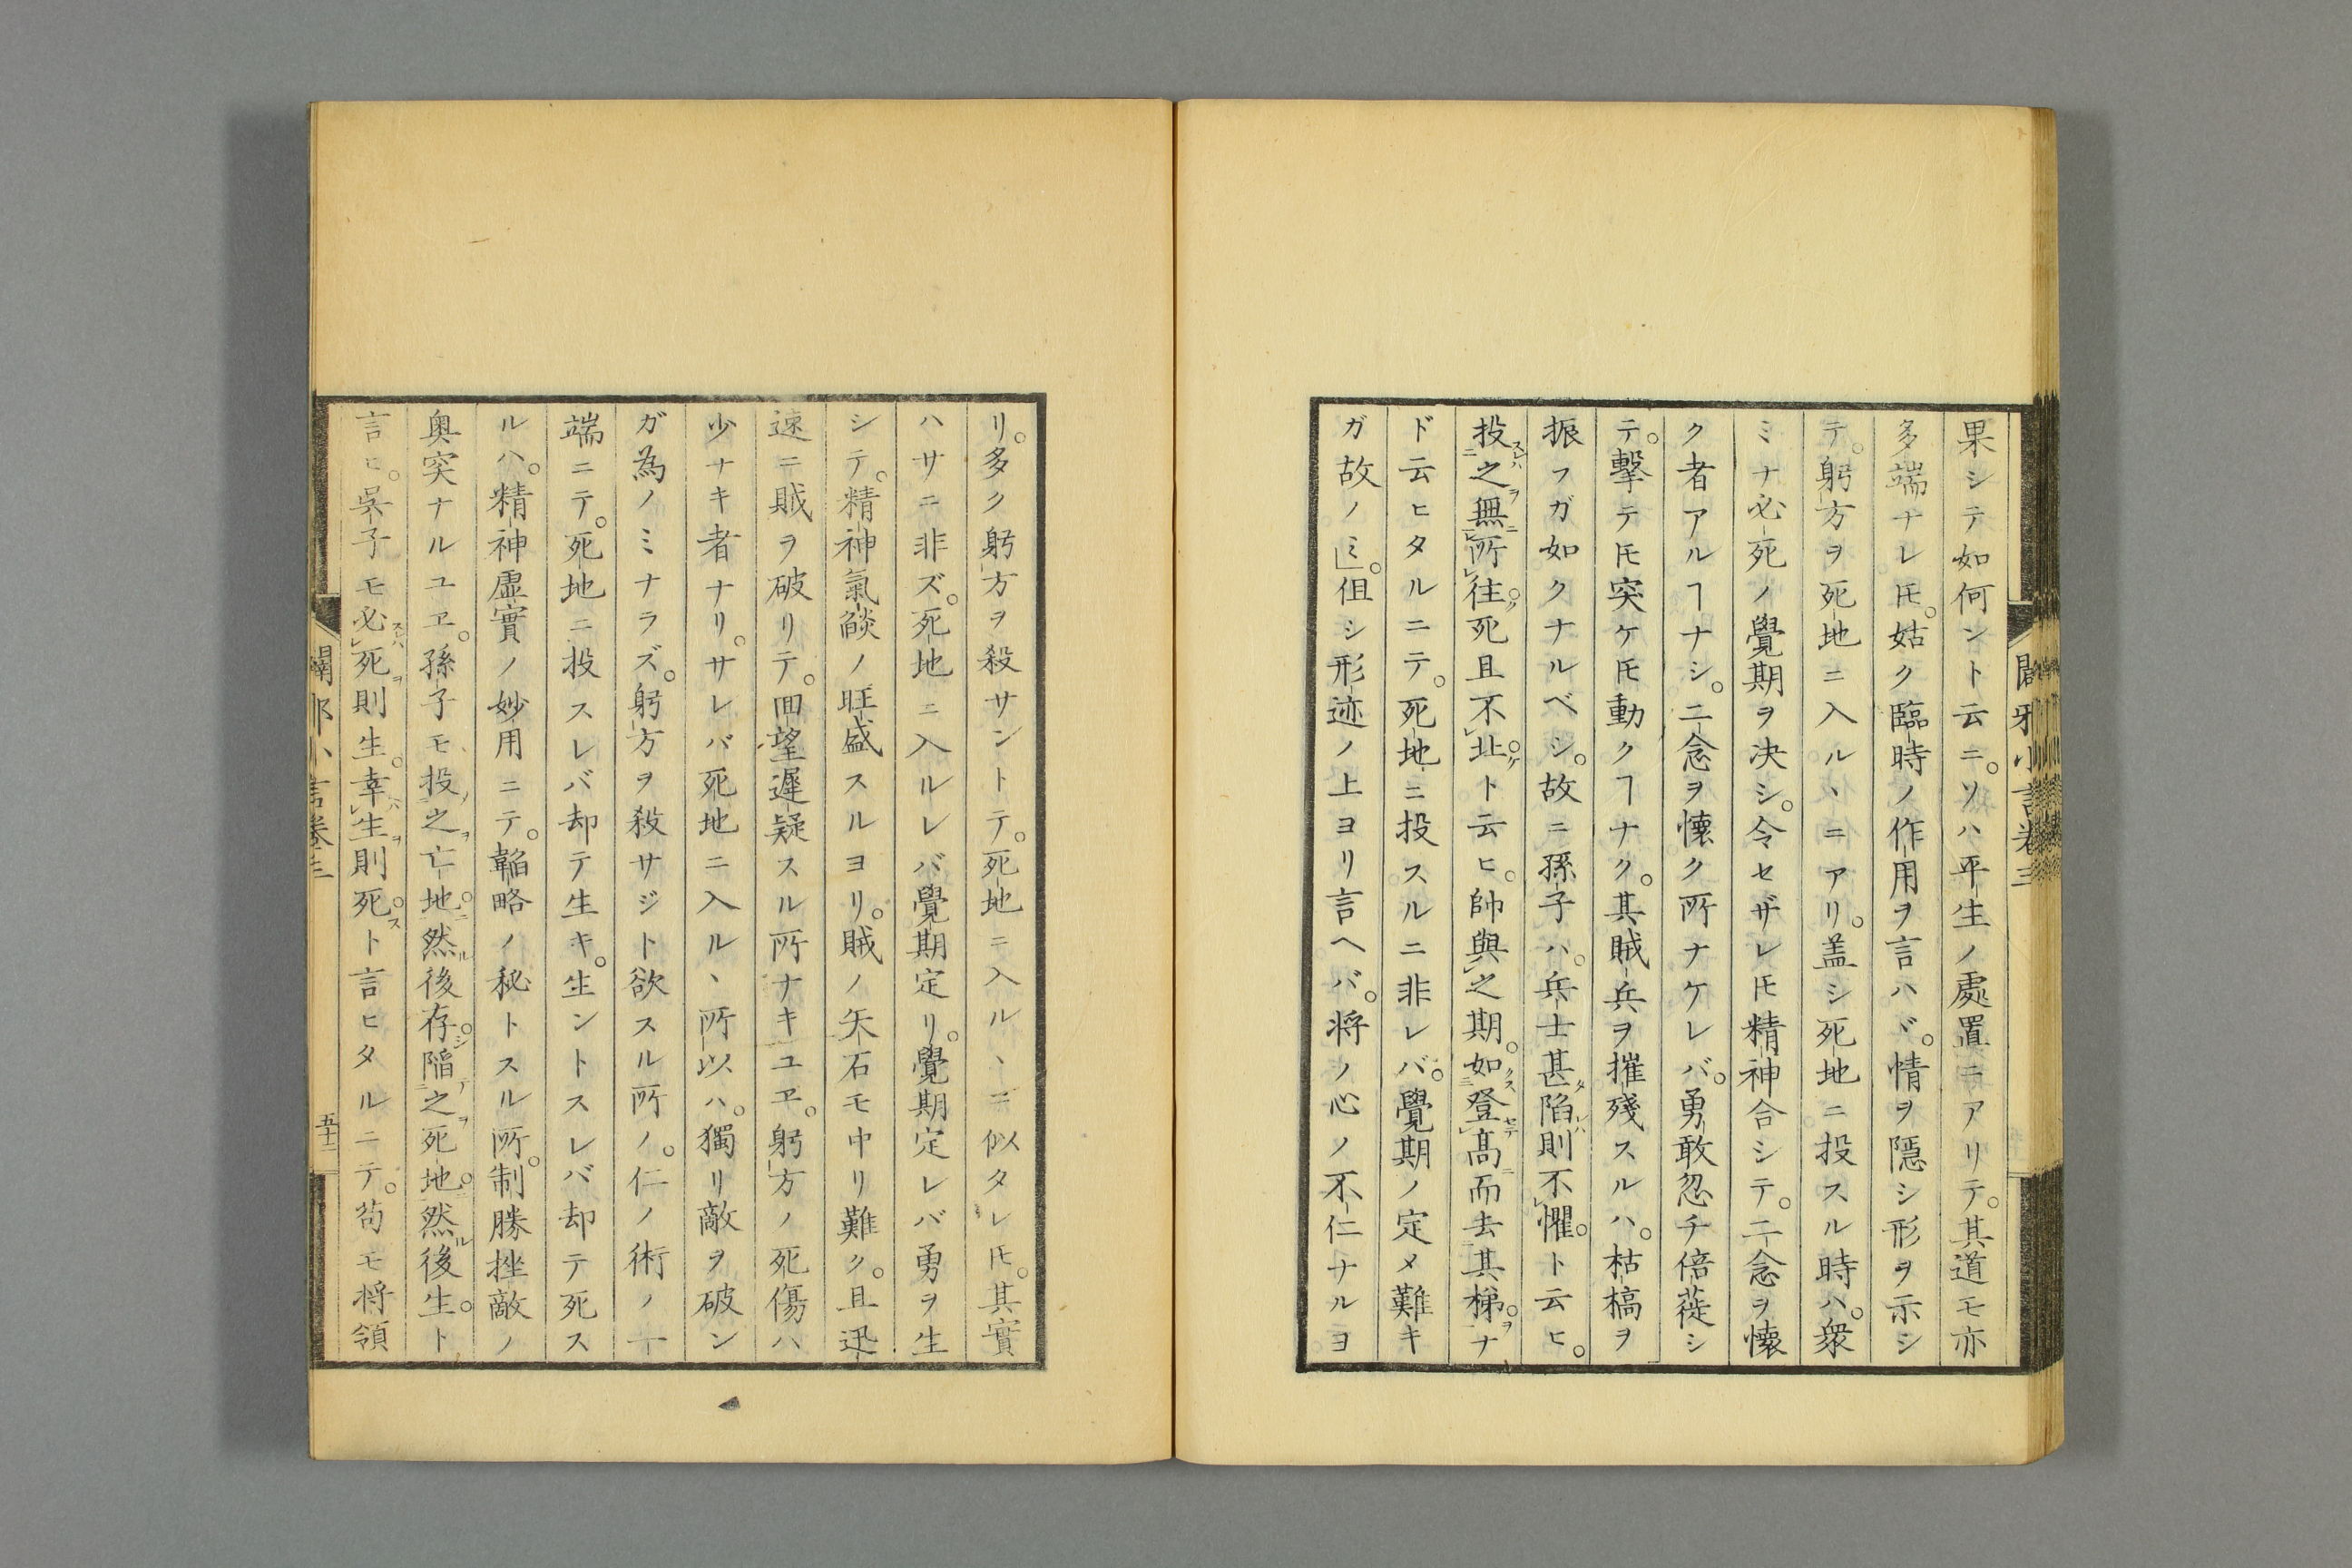 果シテ如何ント云ニ。ソハ平生ノ處置ニアリテ。其道モ亦
多端ナレ𪜈。姑ク臨時ノ作用ヲ言ハヾ。情ヲ隱シ形ヲ示シ
テ。躬方ヲ死地ニ入ルヽニアリ。盖シ死地ニ投スル時ハ。衆
ミナ必死ノ覺期ヲ決シ。令セザレ𪜈精神合シテ。二念ヲ懷
ク者アルヿナシ。二念ヲ懷ク所ナケレバ。勇敢忽チ倍蓰シ
テ。擊テ𪜈突ケ𪜈動クヿナク。其賊兵ヲ摧殘スルハ。枯槁ヲ
振フガ如クナルベシ。故ニ孫子ハ。兵士甚陷則不懼。ト云ヒ。
投之無所往。死且不北。ト云ヒ。帥與之期。如登高而去其梯。ナ
ド云ヒタルニテ。死地ニ投スルニ非レバ。覺期ノ定メ難キ
ガ故ノミ。但シ形迹ノ上ヨリ言ヘバ。将ノ心ノ不仁ナルヨ
リ。多ク躬方ヲ殺サントテ。死地ニ入ルヽニ似タレ𪜈。其實
ハサニ非ズ。死地ニ入ルレバ覺期定リ。覺期定レバ勇ヲ生
シテ。精神氣燄ノ旺盛スルヨリ。賊ノ矢石モ中リ難ク。且迅
速ニ賊ヲ破リテ。回望遲疑スル所ナキユヱ。躬方ノ死傷ハ
少ナキ者ナリ。サレバ死地ニ入ルヽ所以ハ。獨リ敵ヲ破ン
ガ為ノミナラズ。躬方ヲ殺サジト欲スル所ノ。仁ノ術ノ一
端ニテ。死地ニ投スレバ却テ生キ。生ントスレバ却テ死ス
ルハ。精神虛實ノ妙用ニテ。韜略ノ秘トスル所。制勝挫敵ノ
奥突ナルユヱ。孫子モ投之亡地。然後存。陷之死地。然後生。ト
言ヒ。吳子モ必死則生。幸生則死。ト言ヒタルニテ。苟モ将領
五十二